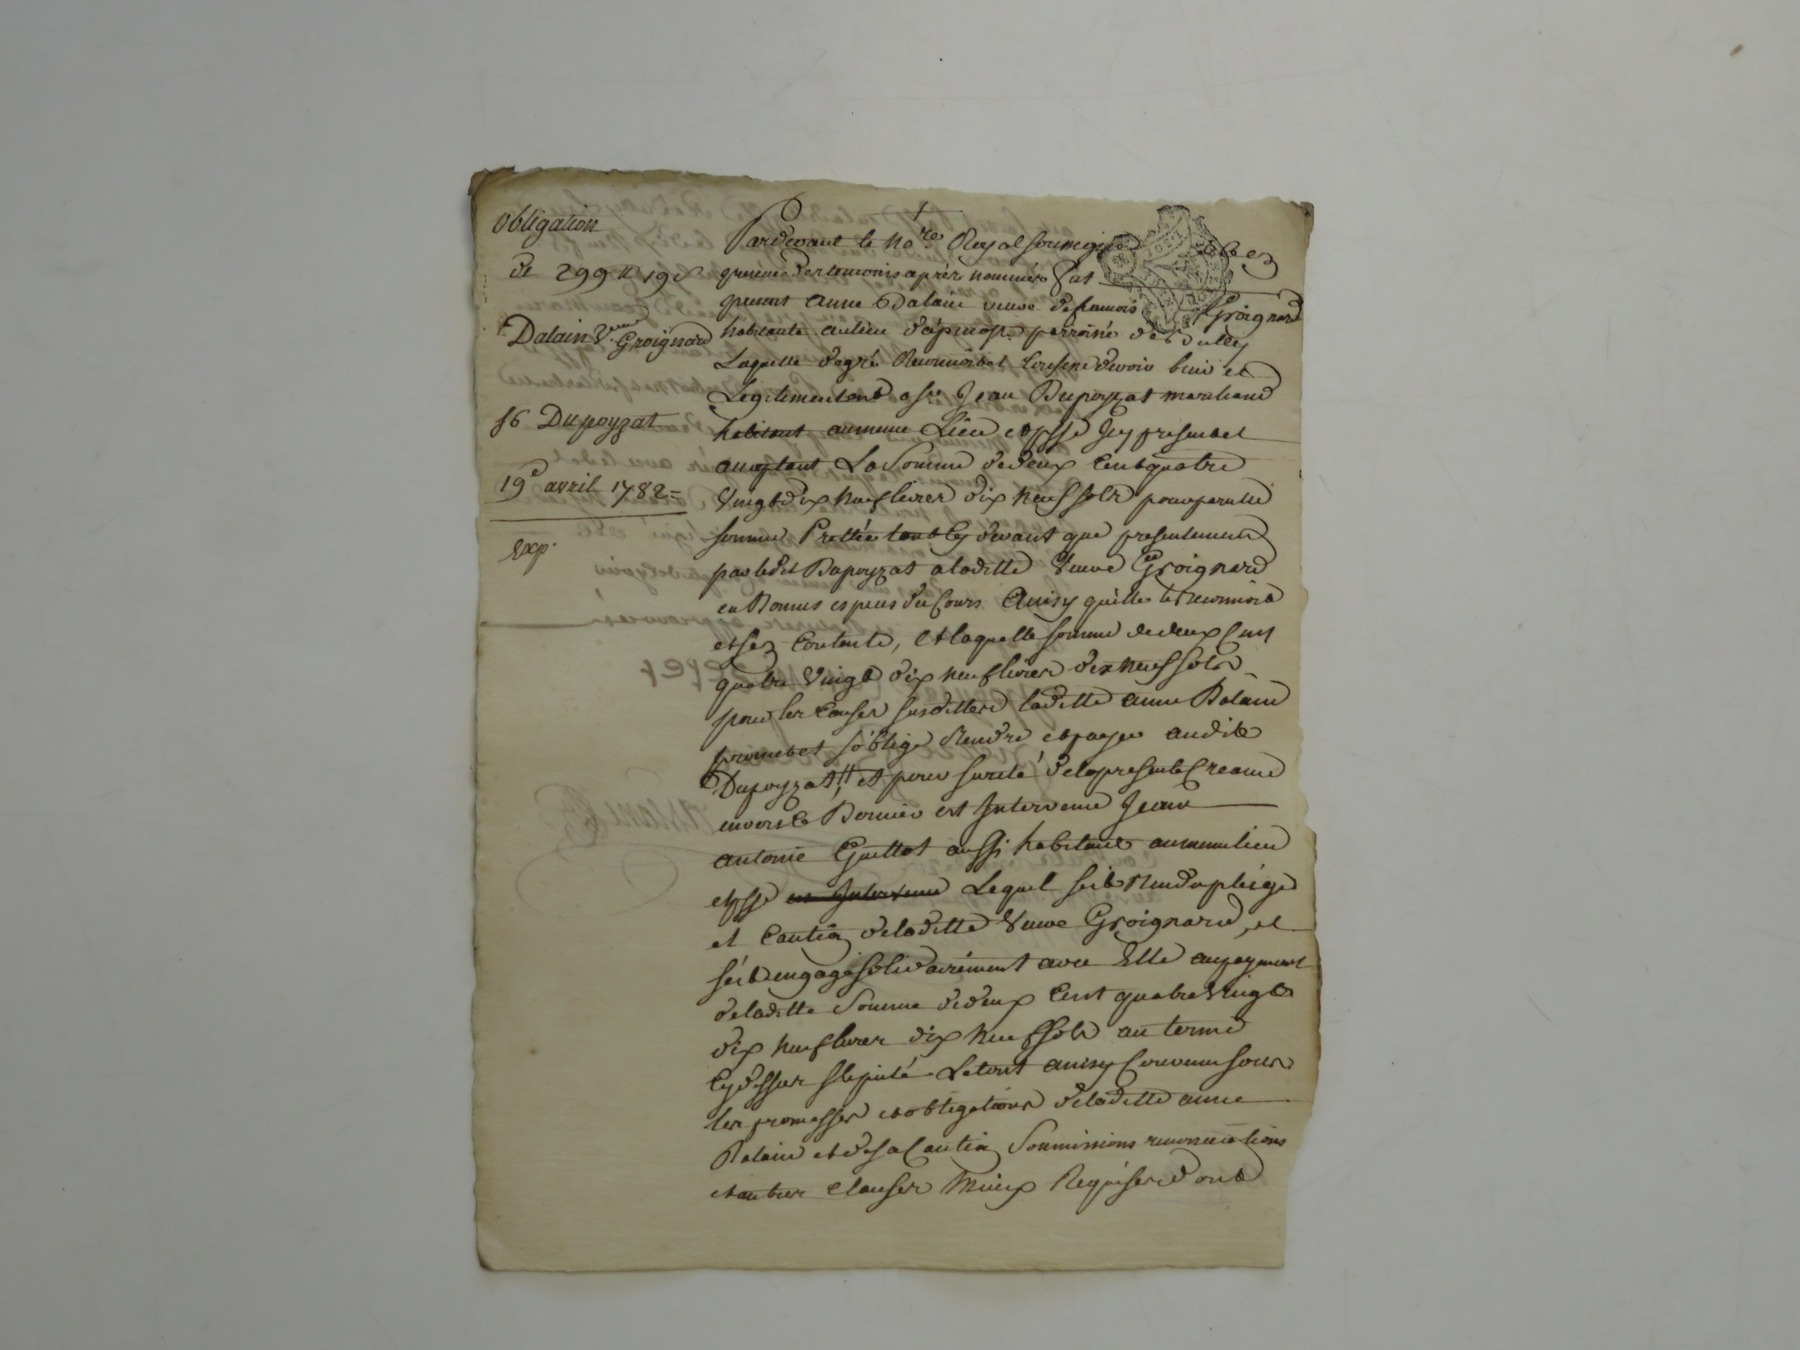 Obligation
de 299 ₶ 19 s
Dalain Ve. Groignard
Dupoyzat
19e avril 1782 =
Exp.
Pardevant le nore. Royal soussigné
presence des temoins après nommés fut
present anne Dalain veuve de francois Groignard
habitante au lieu parroisse de
Laquelle de gré Reconnoit et Confesse devoir bien et
Legitimement a sr. Jean Dupoyzat marchand
habitant au meme Lieu et psse Icy present et
acceptant La Somme de deux Cent quatre
vingt dix neuf livres dix neuf sols pour pareille
somme Prettée tant cy devant que presentement
par ledit Dupoyzat a laditte veuve Groignard
en Bonnes especes du Cours ainsy qu'elle le Reconnoit
et sen Contente, et laquelle somme de deux Cent
quatre vingt dix neuf livres dix neuf sols
pour les Causes susdittes laditte anne Dalain
promet et s'oblige Rendre et payer audit
Dupoyzat et pour sureté de la presente Creance
envers Ce Dernier est Intervenu Jean
antoine Guillot aussi habitant au meme lieu
et psse est Intervenu Lequel s'est Rendu pleige
et Caution de laditte veuve Groignard, et
s'est engagé solidairement avec Elle au payement
de laditte Somme de deux Cent quatre vingt
dix neuf livres dix neuf sols au terme
Cy dessus stipulé Le tout ainsy Convenu sous
les promesses et obligations de laditte anne
Dalain et de sa Caution Soumissions renonciations
et autres Clauses Mieux Requises dont